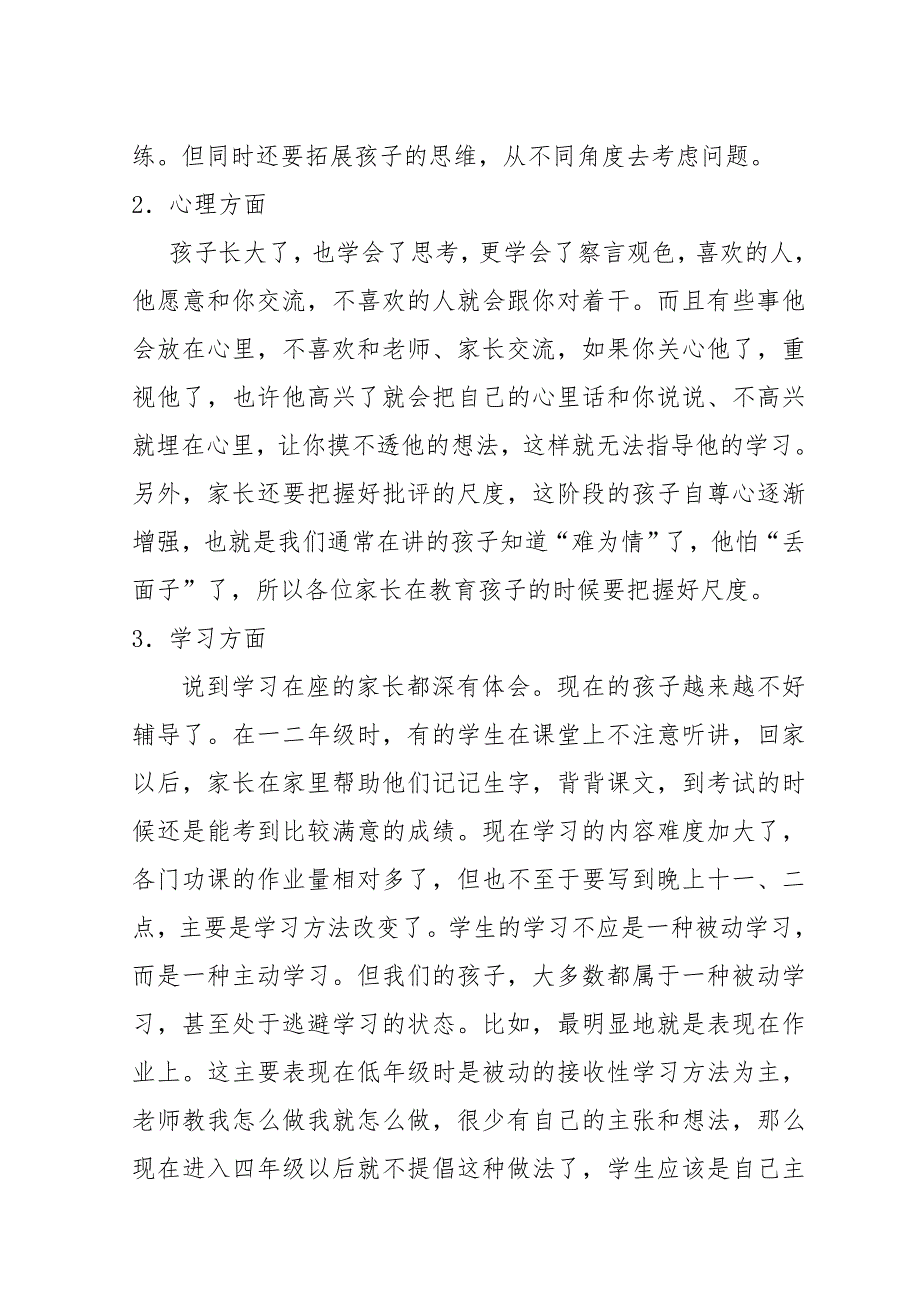 练。但同时还要拓展孩子的思维，从不同角度去考虑问题。
2．心理方面
孩子长大了，也学会了思考，更学会了察言观色，喜欢的人，
他愿意和你交流，不喜欢的人就会跟你对着干。而且有些事他
会放在心里，不喜欢和老师、家长交流，如果你关心他了，重
视他了，也许他高兴了就会把自己的心里话和你说说、不高兴
就埋在心里，让你摸不透他的想法，这样就无法指导他的学习。
另外，家长还要把握好批评的尺度，这阶段的孩子自尊心逐渐
增强，也就是我们通常在讲的孩子知道“难为情”了，他怕“丢
面子”了，所以各位家长在教育孩子的时候要把握好尺度。
3．学习方面
说到学习在座的家长都深有体会。现在的孩子越来越不好
辅导了。在一二年级时，有的学生在课堂上不注意听讲，回家
以后，家长在家里帮助他们记记生字，背背课文，到考试的时
候还是能考到比较满意的成绩。现在学习的内容难度加大了，
各门功课的作业量相对多了，但也不至于要写到晚上十一、二
点，主要是学习方法改变了。学生的学习不应是一种被动学习，
而是一种主动学习。但我们的孩子，大多数都属于一种被动学
习，甚至处于逃避学习的状态。比如，最明显地就是表现在作
业上。这主要表现在低年级时是被动的接收性学习方法为主，
老师教我怎么做我就怎么做，很少有自己的主张和想法，那么
现在进入四年级以后就不提倡这种做法了，学生应该是自己主